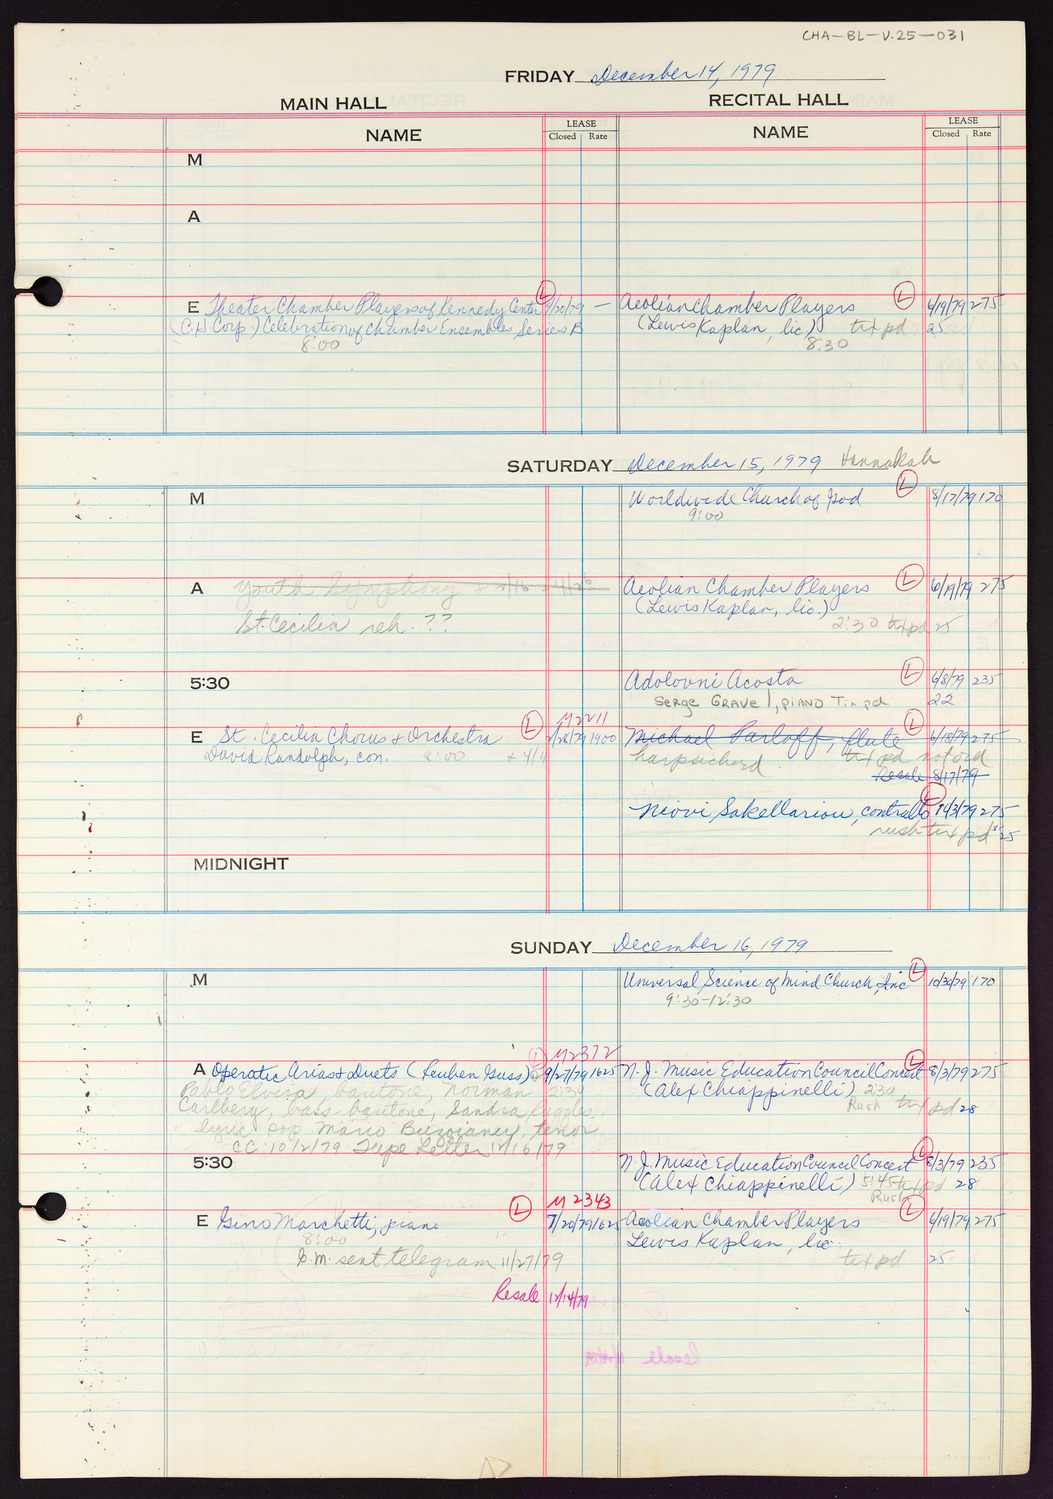 CHA-BL-V.25-031
FRIDAY December 14, 1979
MAIN HALL RECITAL HALL
NAME LEASE Closed Rate NAME LEASE Closed Rate
M
A
E Theater Chamber Players of Kennedy Center L 9/20/79 — Aeolian Chamber Players L 6/19/79 275
(C.H. Corp.) Celebration of Chamber Ensembles Series B (Lewis Kaplan, lic) txt pd 25
8:00 8:30
SATURDAY December 15, 1979 Hannukah
M Worldwide Church of God L 8/17/79 170
9:00
A Youth Symphony Aeolian Chamber Players L 6/19/79 275
St. Cecilia reh. ?? (Lewis Kaplan, lic.)
2:30 txt pd 25
5:30 Adolovni Acosta L 6/8/79 235
SERGE GRAVEL, PIANO Tix pd 22
M2211
E St. Cecilia Chorus & Orchestra L 1900 Michael Parloff, flute L 6/18/79 275
David Randolph, con. 8:00 harpsichord txt pd not ord
Resale 8/17/79
Niovi Sakellariou, contralto L 10/3/79 275
rush txt pd 25
MIDNIGHT
SUNDAY December 16, 1979
M Universal Science of Mind Church, Inc L 10/30/79 170
9:30-12:30
L M2372
A Operatic Arias & Duets (Reuben Guss) 9/27/79 1625 N.J. Music Education Council Concert L 8/3/79 275
Pablo Elvira, baritone, Norman 2:30 (Alex Chiappinelli) 2:30
Carlberg, bass-baritone, Sandra Ruggles, Rush txt pd 28
lyric sop Mario Buzoianey, tenor
CC: 10/2/79 Tape Letter 11/16/79
5:30 N.J. Music Education Council Concert L 8/3/79 235
(Alex Chiappinelli) 5:45 txt pd 28
Rush
L M2343
E Gino Marchetti, piano 7/20/79 1625 Aeolian Chamber Players L 6/19/79 275
8:00 Lewis Kaplan, lic.
G.M. sent telegram 11/27/79 txt pd 25
Resale 12/14/79